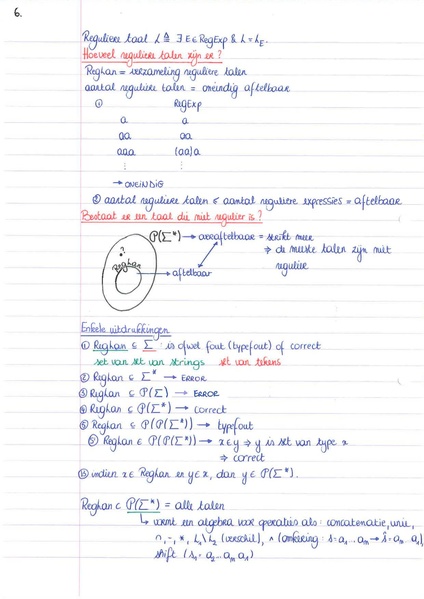 6.
Reguliere taal L ≙ ∃ E ∈ RegExp & L = L_E.
Hoeveel reguliere talen zijn er?
Reglan = verzameling reguliere talen
aantal reguliere talen = oneindig aftelbaar
① RegExp
a a
aa aa
aaa (aa)a
⋮ ⋮
→ ONEINDIG
② aantal reguliere talen ≤ aantal reguliere expressies = aftelbaar
Bestaat er een taal die niet regulier is?
P(Σ*) → overaftelbaar = strikt meer
? ⇒ de meeste talen zijn niet
Reglan → aftelbaar regulier
Enkele uitdrukkingen
① Reglan ⊆ Σ : is ofwel fout (typefout) of correct
set van set van strings set van tekens
② Reglan ⊆ Σ* → ERROR
③ Reglan ⊆ P(Σ) → ERROR
④ Reglan ⊆ P(Σ*) → correct
⑤ Reglan ⊆ P(P(Σ*)) → typefout
Reglan ∈ P(P(Σ*)) → x∈y ⇒ y is set van type x
⇒ correct
indien x ∈ Reglan en y ∈ x, dan y ∈ P(Σ*).
Reglan ⊂ P(Σ*) = alle talen
↳ vormt een algebra voor operaties als: concatenatie, unie,
∩, -, *, L₁\L₂ (verschil), ^ (omkering: s = a₁ ... aₘ → ŝ = aₘ ... a₁)
shift (s₁ = a₂ ... aₘ a₁)